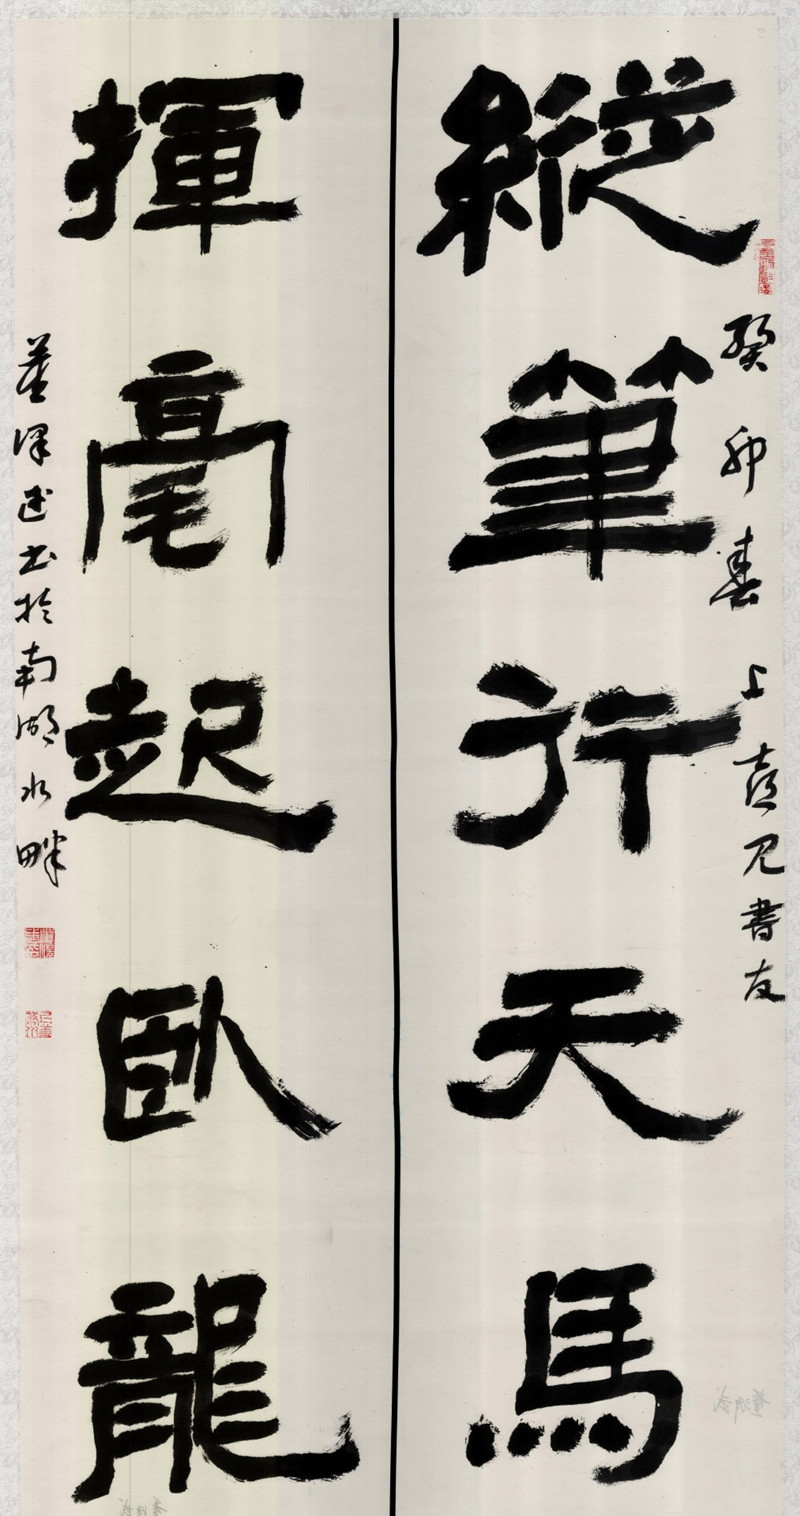 癸卯春上 見書友
縱筆行天馬
揮毫起臥龍
董書於南湖水畔